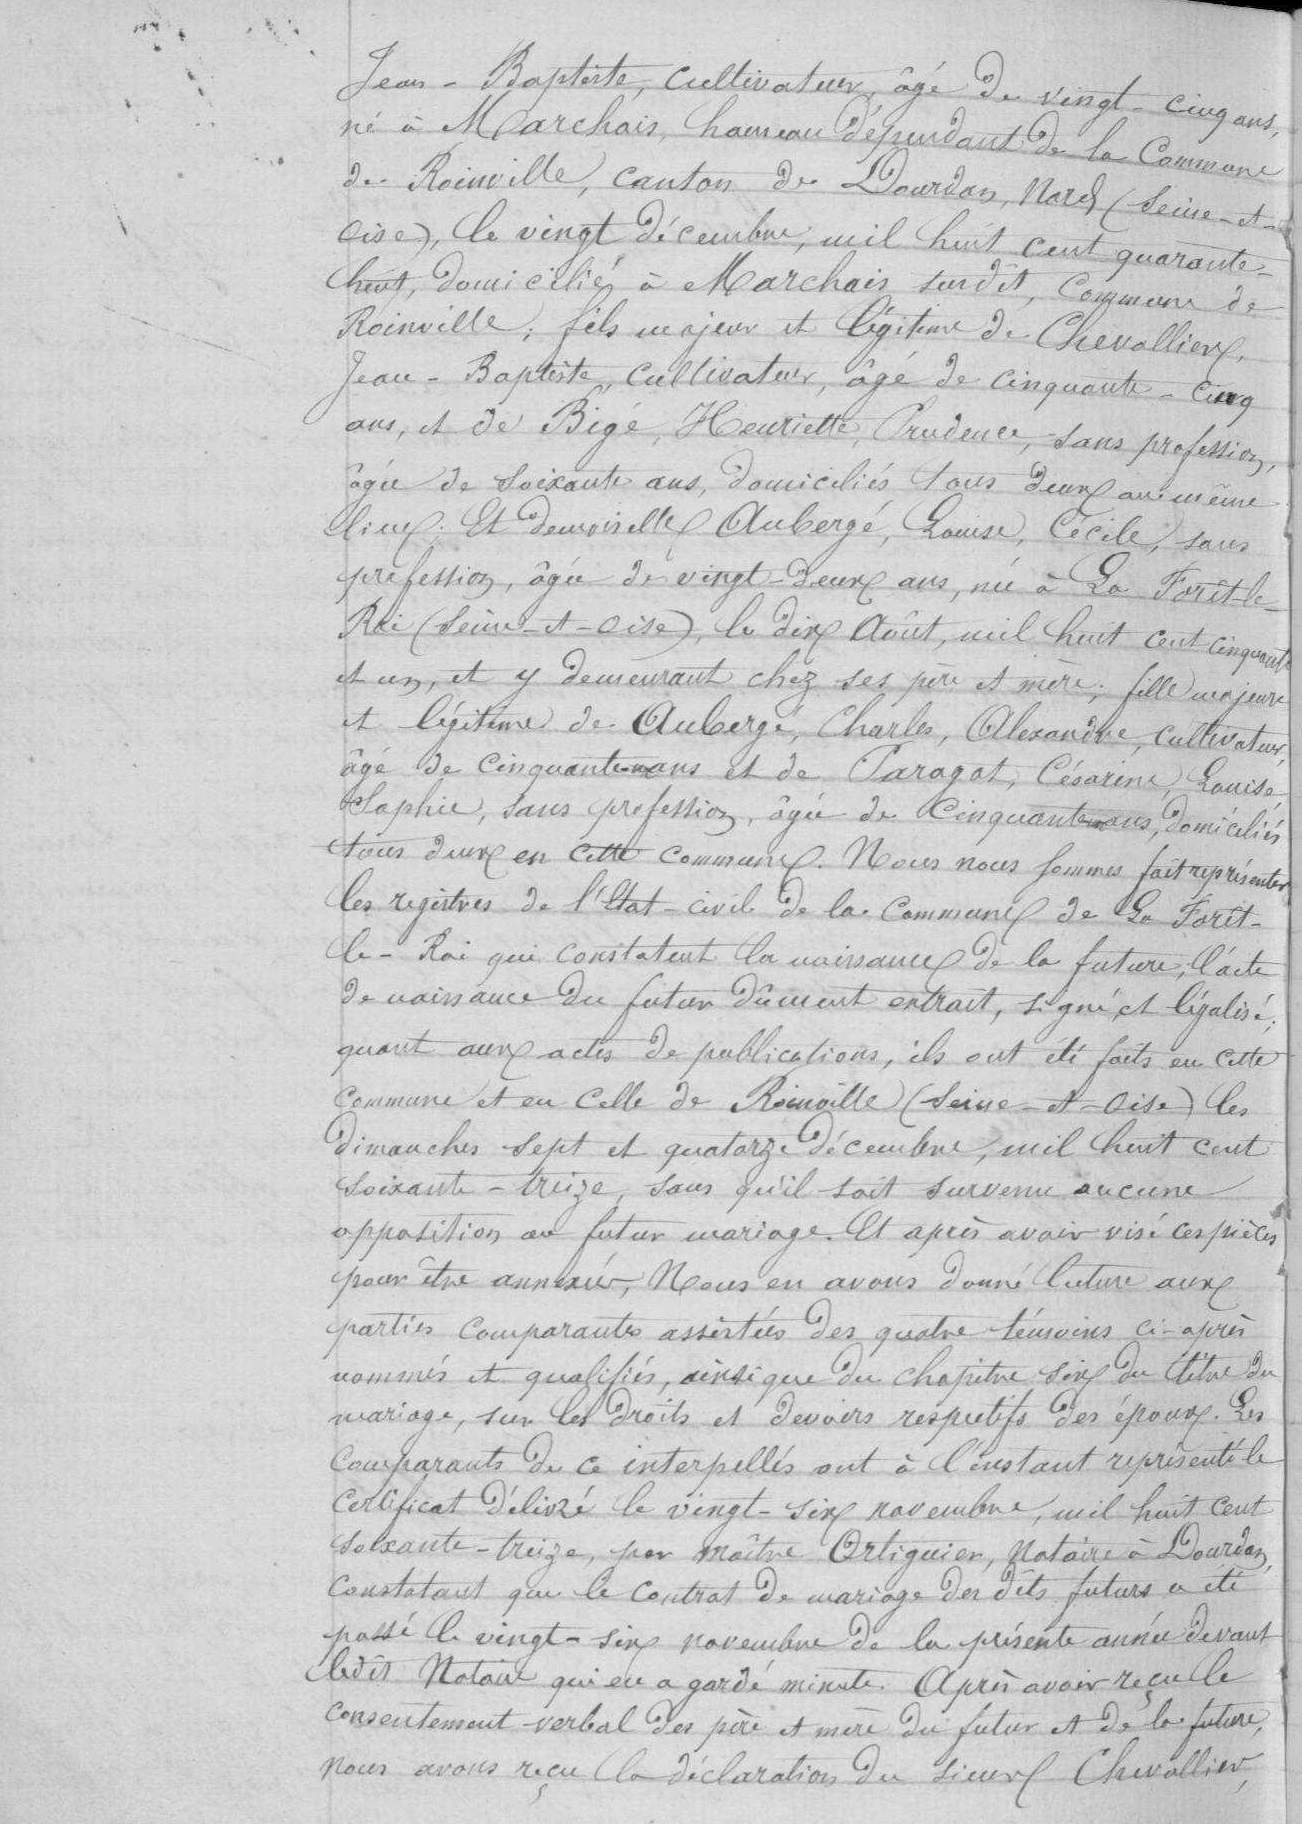 Jean - Baptiste, cultivateur, âgé de vingt-cinq ans,
né à Marchais, hameau dépendant de la Commune
de Roinville, canton de Dourdan, Nord (Seine-et-
Oise), le vingt décembre, mil huit cent quarante-
huit, domicilié à Marchais susdit, Commune de
Roinville; fils majeur et légitime de Chevallier,
Jean - Baptiste, cultivateur, âgé de cinquante-cinq
ans, et de Bigé, Henriette, Prudence, sans profession,
âgée de soixante ans, domiciliés tous deux au même
lieu. Et demoiselle Aubergé, Louise, Cécile, sans
profession, âgée de vingt-deux ans, née à La Forêt-le-
Roi (Seine-et-Oise), le dix Août, mil huit cent cinquante
et un, et y demeurant chez ses père et mère; fille majeure
et légitime de Aubergé, Charles, Alexandre, cultivateur,
âgé de cinquante ans et de Paragot, Césarine, Louise
Sophie, sans profession, âgée de cinquante ans, domiciliés
tous deux en cette commune. Nous nous sommes fait représenter
les registres de l'Etat-civil de la commune de La Forêt-
le-Roi qui constatent la naissance de la future, l'acte
de naissance du futur dûment extrait, signé et légalisé;
quant aux actes de publications, ils ont été faits en cette
commune et en celle de Roinville (Seine-et-Oise) les
dimanches sept et quatorze décembre, mil huit cent
soixante-treize, sans qu'il soit survenu aucune
opposition au futur mariage. Et après avoir visé ces pièces
pour être annexées, Nous en avons donné lecture aux
parties comparantes assistées des quatre témoins ci-après
nommés et qualifiés, ainsi que du chapitre six du titre du
mariage, sur les droits et devoirs respectifs des époux. Les
comparants de ce interpellés ont à l'instant représenté le
certificat délivré le vingt-six novembre, mil huit cent
soixante-treize, par maître Ortiguier, Notaire à Dourdan,
constatant que le contrat de mariage des dits futurs a été
passé le vingt-six novembre de la présente année devant
ledit Notaire qui en a gardé minute. Après avoir reçu le
consentement verbal des père et mère du futur et de la future,
nous avons reçu la déclaration du sieur Chevallier,